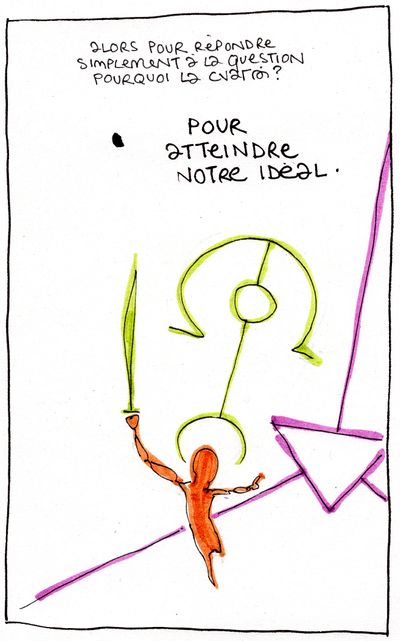 ALORS POUR RÉPONDRE
SIMPLEMENT À LA QUESTION
POURQUOI LA
POUR
ATTEINDRE
NOTRE IDÉAL.